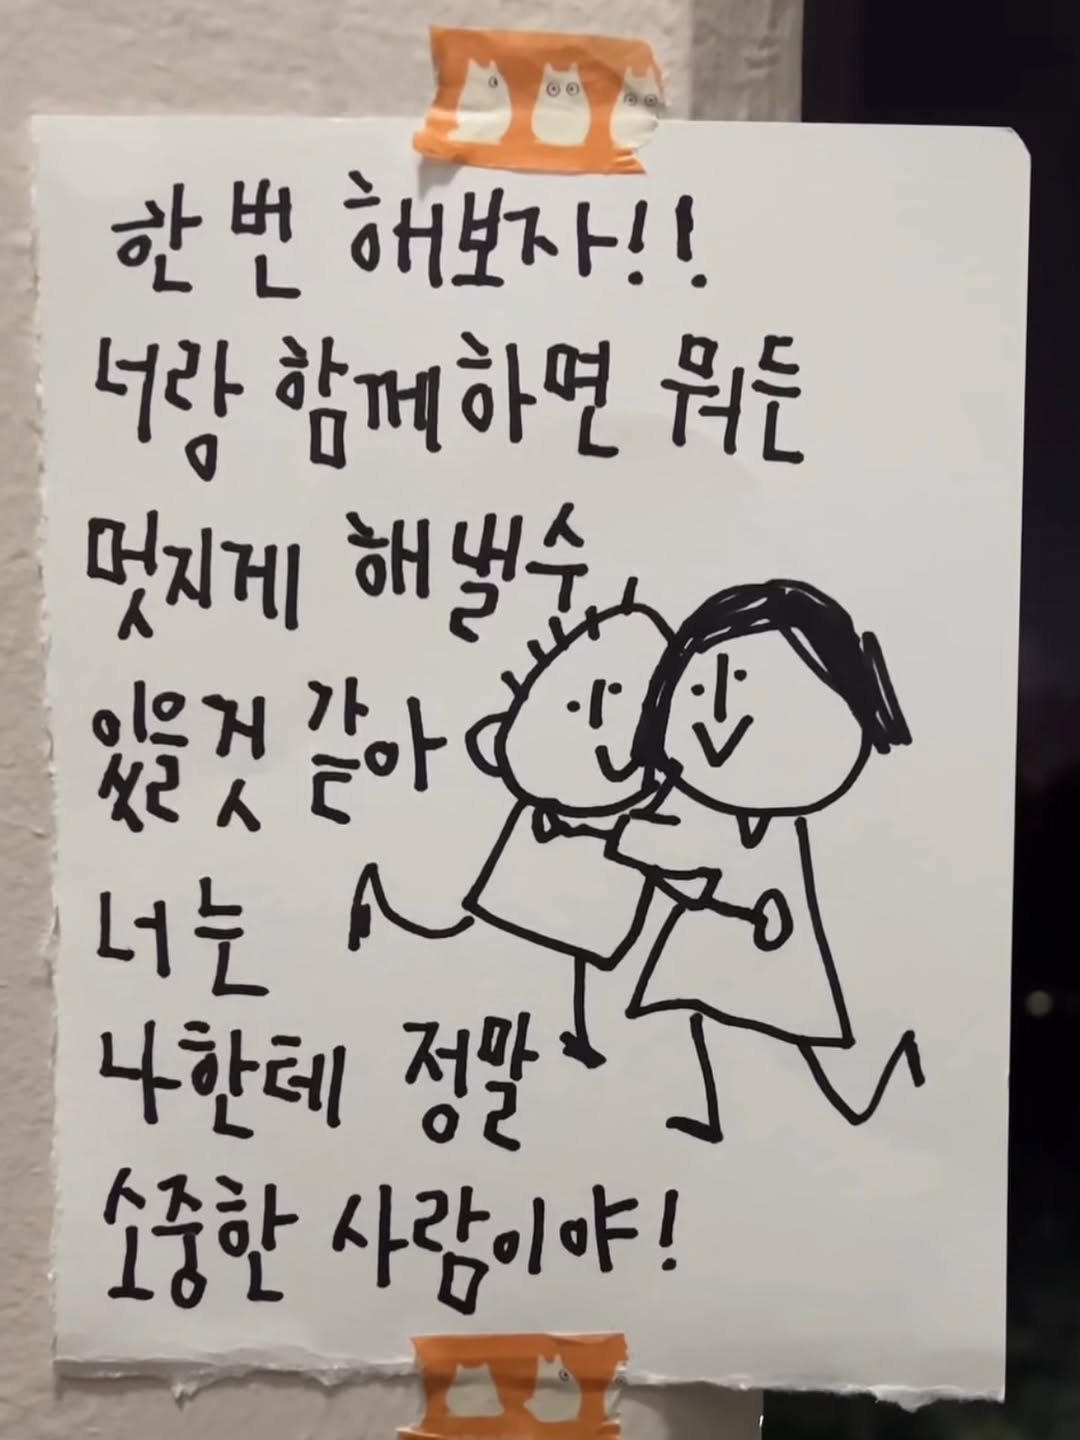 한 번 해보자!!
너랑 함께하면 뭐든
멋지게 해낼수
있을것 같아
너는
나한테 정말
소중한 사람이야!